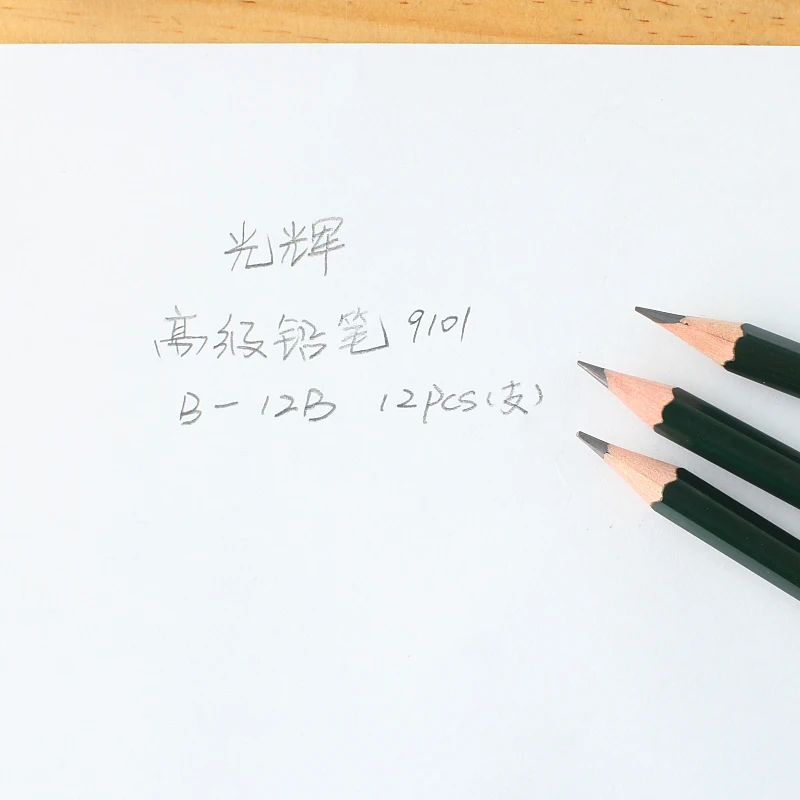 光辉
高级铅笔 9101
B-12B 12pcs(支)